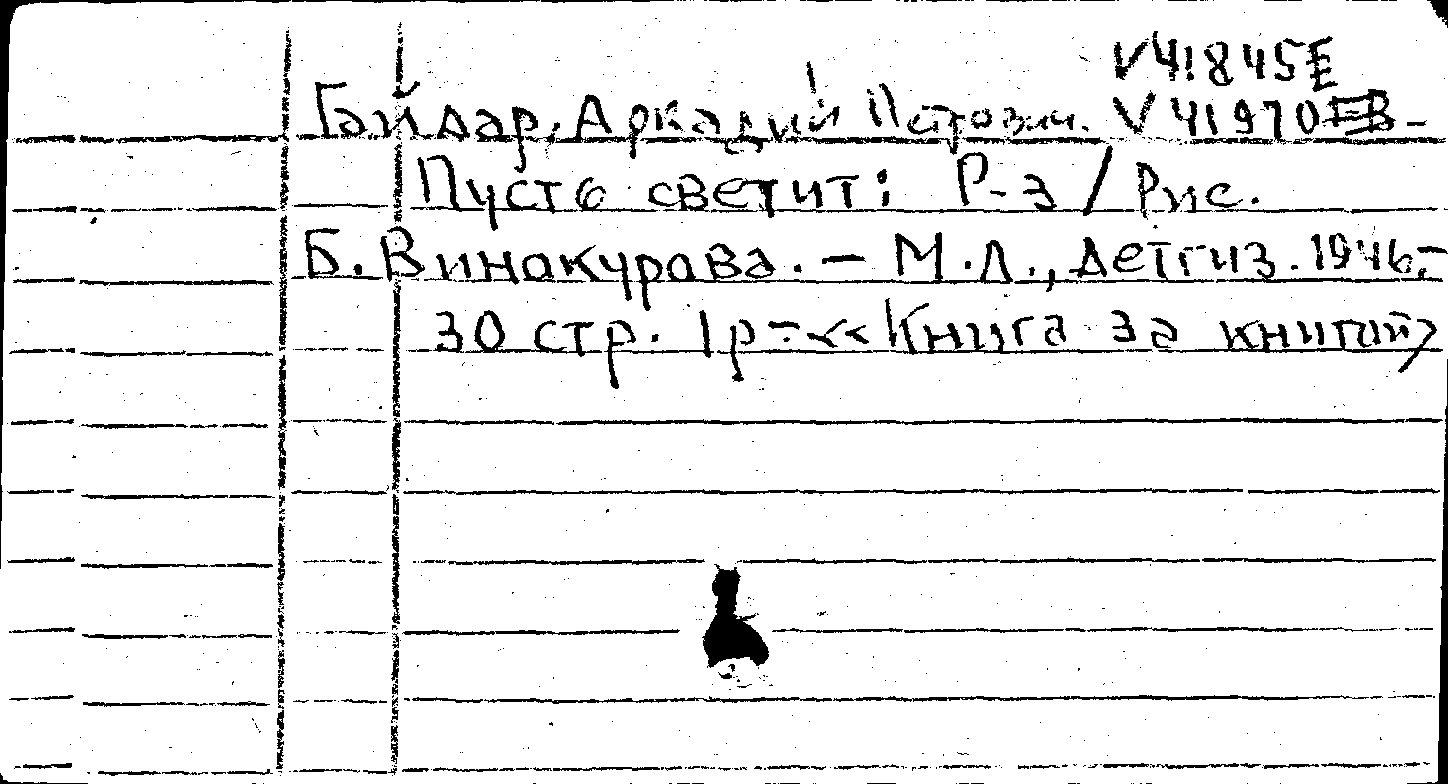 V 41845E
Гайдар, Аркадий Петрович. V 41970
Пусть светит: Р-з / Рис.
Б. Винакурава. – М.Л., Детгиз. 1946.-
30 стр. 1р-<<Книга за книгой>